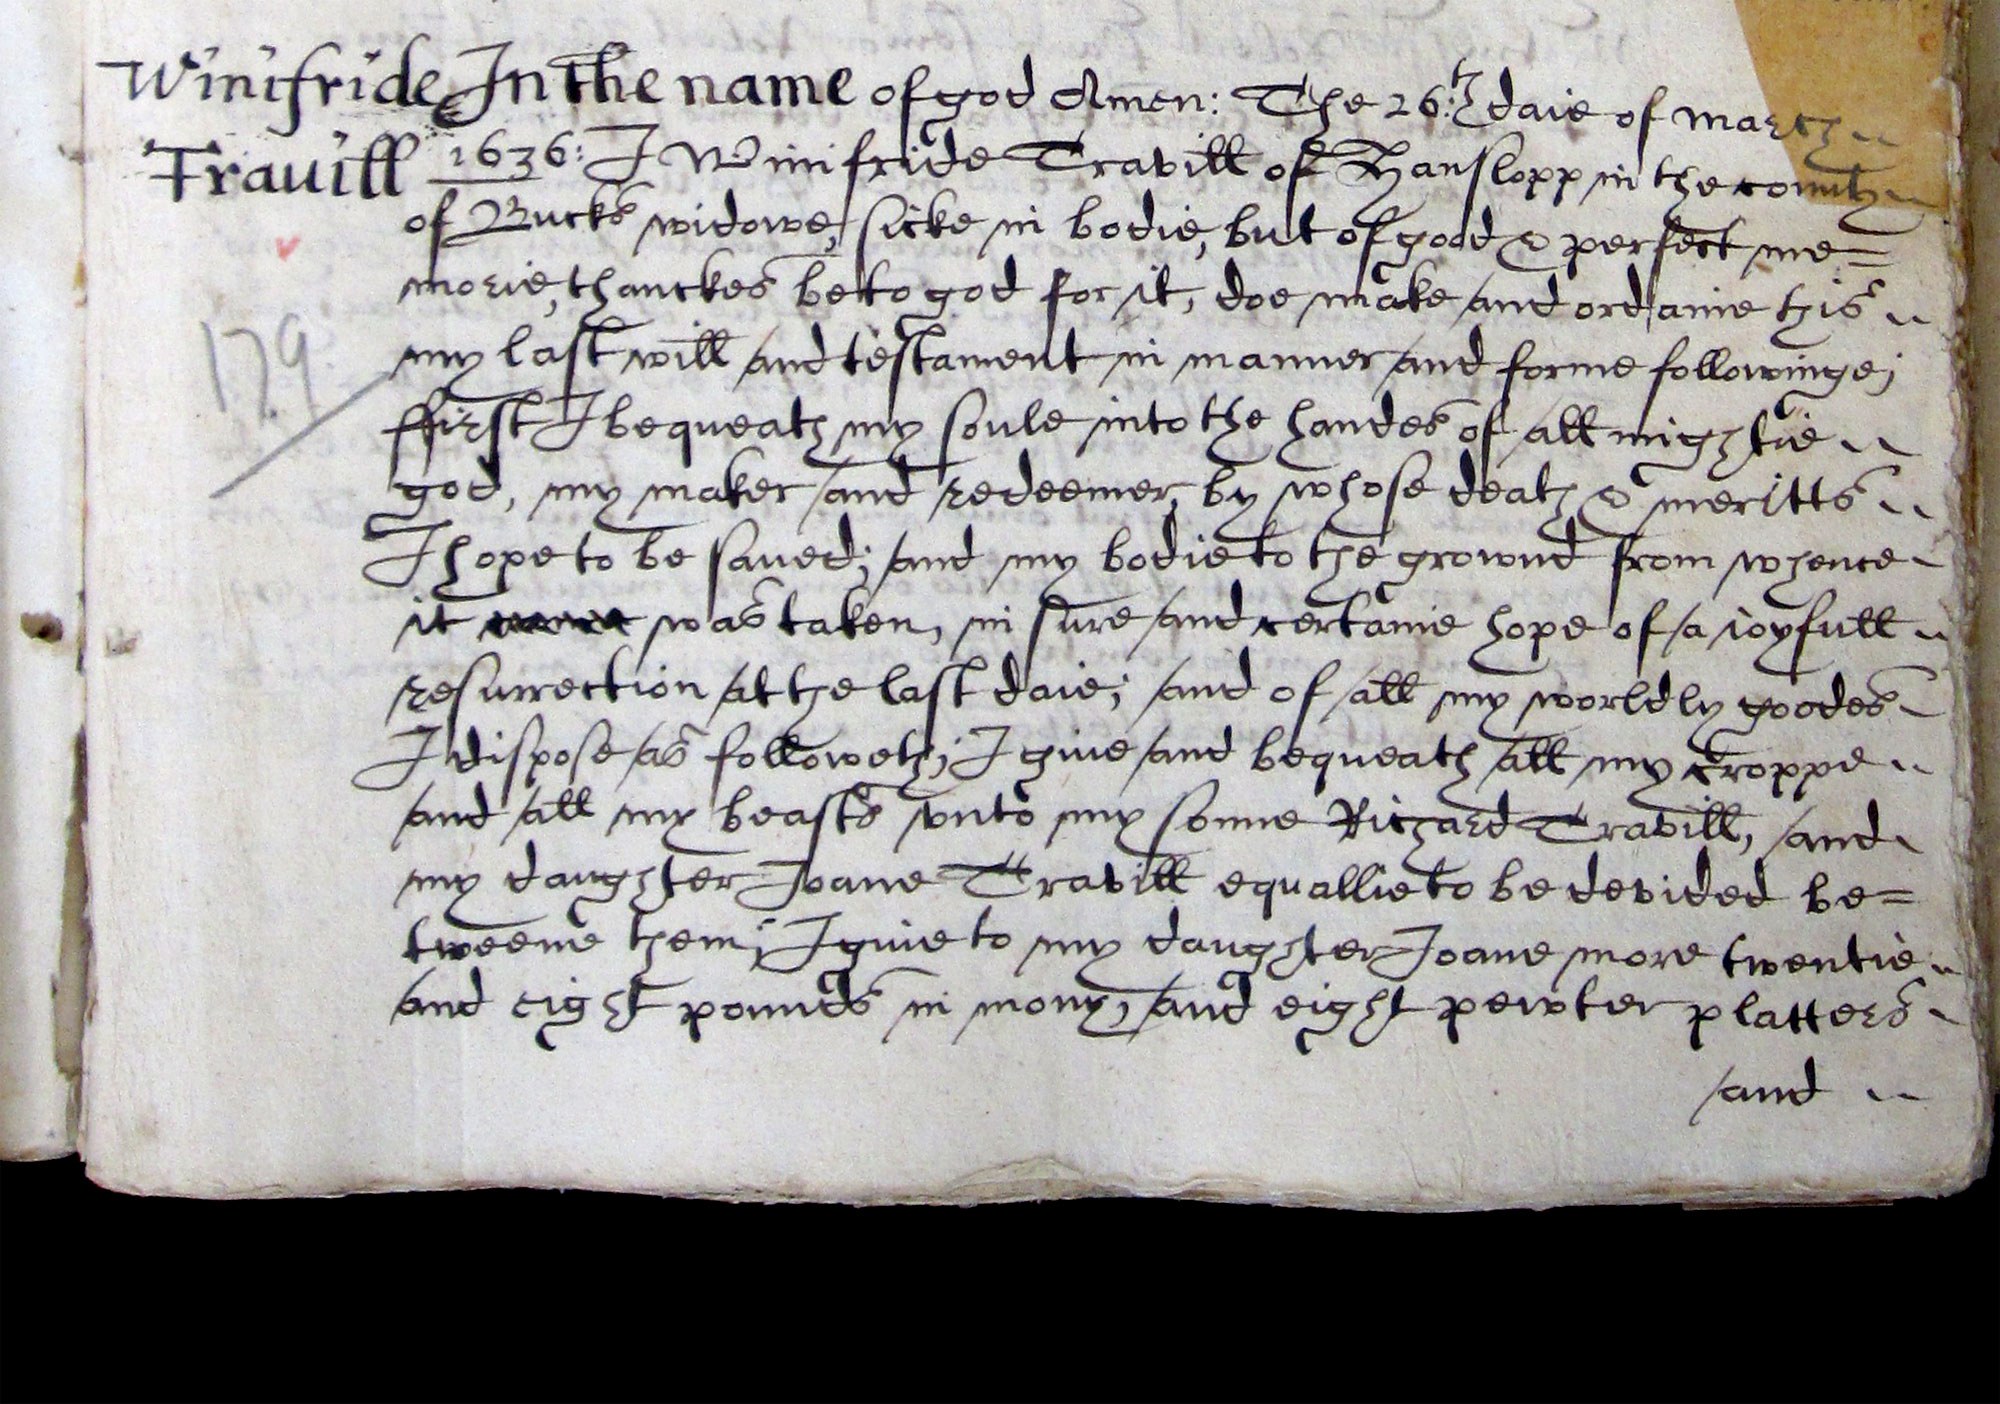 Winifride In the name of god Amen: The 26:th daie of March
Trauill 1636: I Winifride Travill of Hanslopp in the countz
of Bucks widowe, sicke in bodie, but of good & perfect me=
morie, thanckes be to god for it, doe make and ordaine this
my last will and testament in manner and forme followinge;
179
ffirst I bequeath my soule into the handes of allmightie
god, my maker and redeemer, by whose death & meritts
I hope to be saved; and my bodie to the grownd from whence
it was taken, in sure and certaine hope of a ioyfull
resurrection at the last daie; and of all my worldly goodes
I dispose as followeth; I giue and bequeath all my croppe
and all my beasts vnto my sonne Richard Travill, and
my daughter Joane Travill equallie to be devided be=
tweene them; I giue to my daughter Joane more twentie
and eight pounds in mony, and eight pewter platters
and